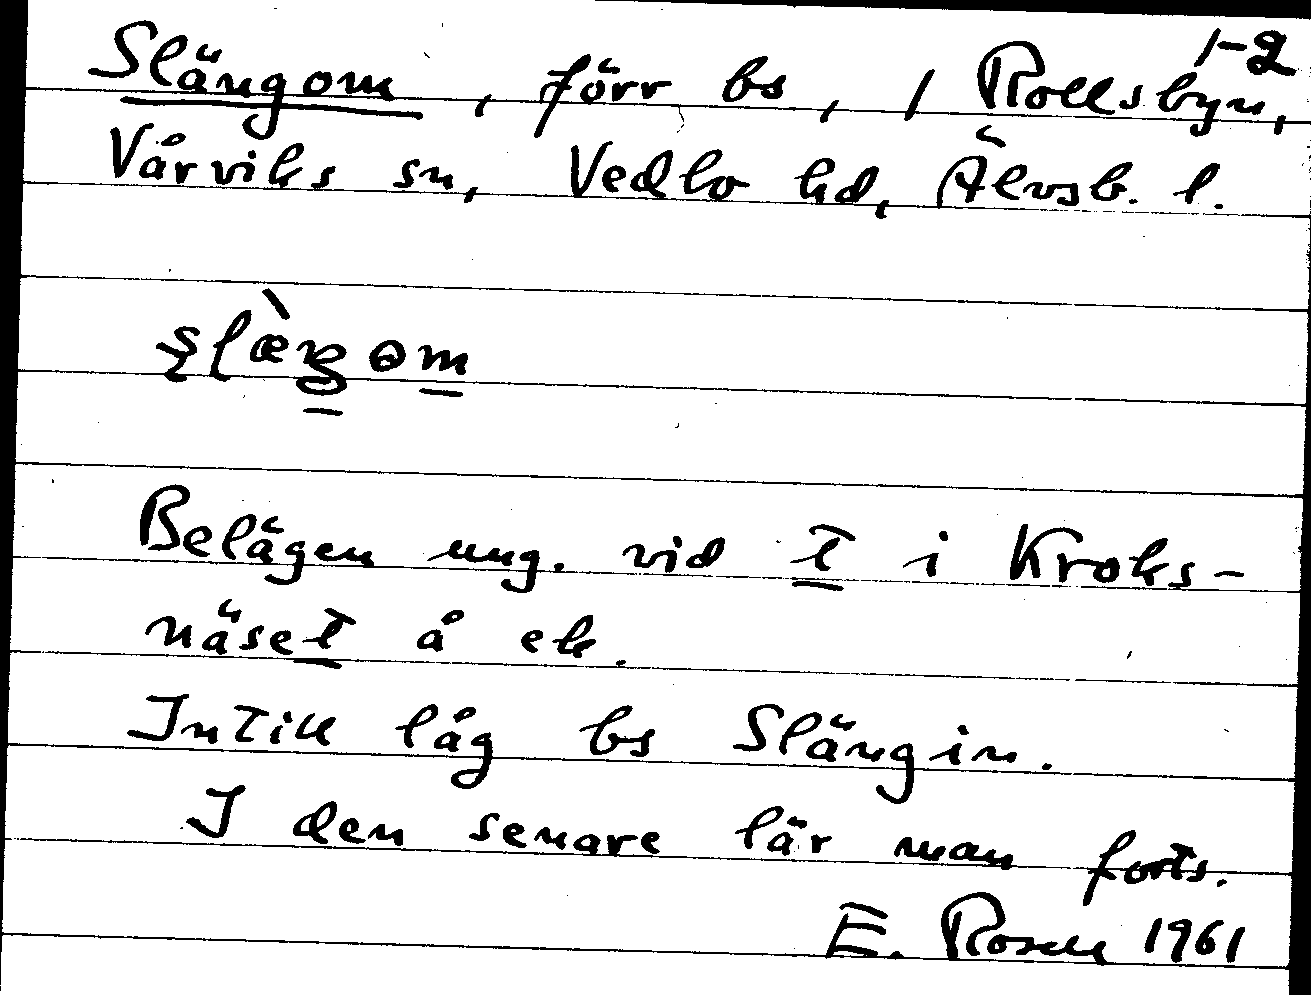 1-2
Slängom, förr bs, / Rollsbyn,
Vårviks sn, Vedbo hd, Älvsb. l.
Belägen ung. vid t i Kroks-
näset å ek.
Intill låg bs Slängin.
I den senare lär man forts.
E. Rosell 1961